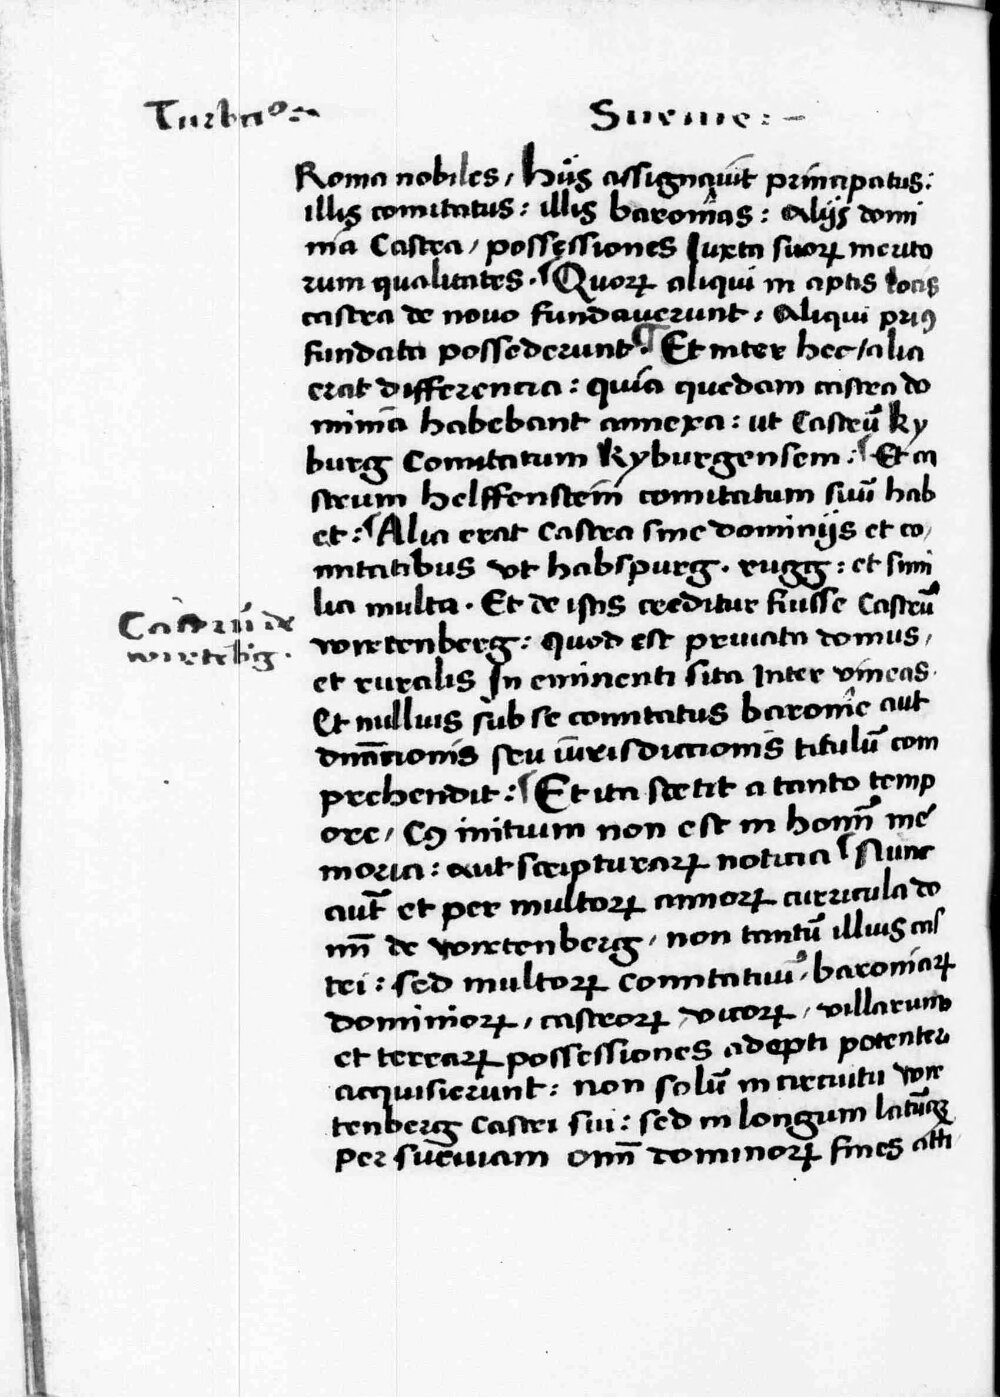 Turbaº:~ Sueuie:-
Roma nobiles, hijs assignauit principatus:
illis comitatus: illis baronias: Alijs domi
nia Castra, possessiones Iuxta suoꝝ merito
rum qualitates. Quoꝝ aliqui in aptis locis
castra de nouo fundauerunt, Aliqui priꝰ
fundata possederunt. ¶ Et inter hec, alia
erat differencia: quia quedam castra do
minia habebant annexa: ut Castrū ky
burg Comitatum kyburgensem: Et ca
strum helffenstein comitatum suū hab
et: Alia erāt Castra sine dominijs et co,
mitatibus vt habspurg. rugg: et simi
lia multa. Et de istis creditur fuisse Castrū
wirtenberg: quod est priuata domus,
et ruralis In eminenti sita Inter vineas.
Castrū de
wirtēbˀg.
Et nulluis sub se comitatus baronie aut
dn̄acionis seu iurisdictionis titulū com
prehendit: Et ita stetit a tanto temp
ore, cꝰ initium non est in homī me
moria: aut scripturaꝝ noticia Nunc
aut̄ et per multoꝝ annoꝝ curricula do
mī de wirtenberg, non tantū illius cas
tri: sed multoꝝ comitatuū, baroniaꝝ
dominioꝝ, castroꝝ, vicoꝝ, villarum
et terraꝝ possessiones adepti potenter
acquisierunt: non solū in circuitu wir
tenberg Castri sui: sed in longum latūqꝫ
per sueuiam om̄ dominoꝝ fines atti